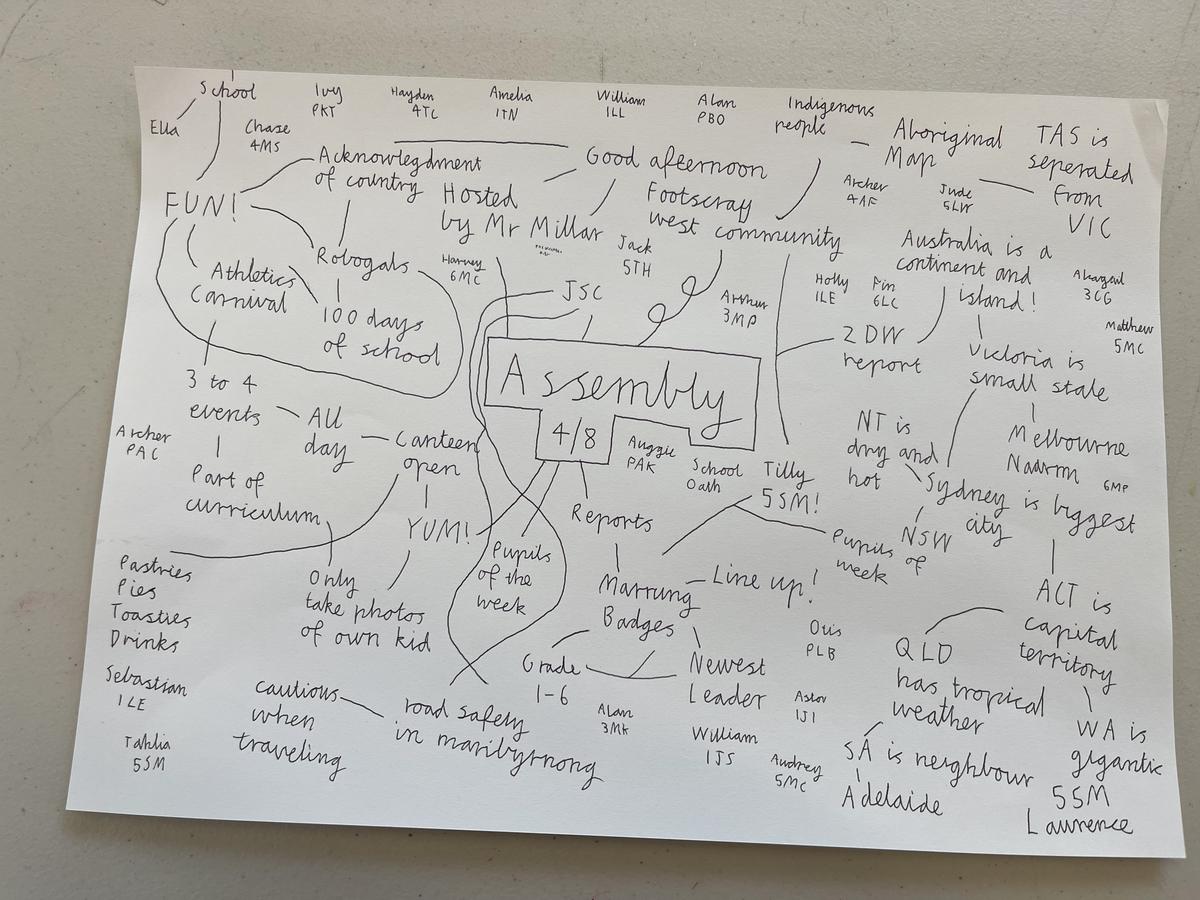 School
Ella
Ivy
PKT
Hayden
4TC
Amelia
1TN
William
1LL
Alan
PBO
Indigenous
people
Aboriginal
Map
TAS is
seperated
from
VIC
Chase
4MS
Acknowlegdment
of country
Good afternoon
Footscray
west community
Hosted
by Mr Millar
FUN!
Archer
4AF
Jude
5LW
Australia is a
continent and
island!
Robogals
Harvey
6MC
Jack
5TH
Athletics
Carnival
100 days
of school
JSC
Arthur
3MP
Holly
1LE
Fin
6LC
3CG
Matthew
5MC
2DW
report
Victoria is
small state
Assembly
4/8
3 to 4
events
All
day
Canteen
open
Archer
PAC
Part of
curriculum
YUM!
Auggie
PAK
School
Oath
Tilly
5SM!
NT is
dry and
hot
Melbourne
Naarm
6MP
Sydney is biggest
city
NSW
of
Reports
Pupils
of the
week
Pupils
week
Pastries
Pies
Toasties
Drinks
Only
take photos
of own kid
Marrung
Badges
Line up!
ACT is
capital
territory
Otis
PLB
QLD
has tropical
weather
Sebastian
1LE
Grade
1-6
Newest
Leader
Cautious
when
traveling
road safety
in maribyrnong
Alan
3MK
Astor
1JI
William
1JS
Audrey
5MC
Tahlia
5SM
SA is neighbour
Adelaide
WA is
gigantic
5SM
Lawrence